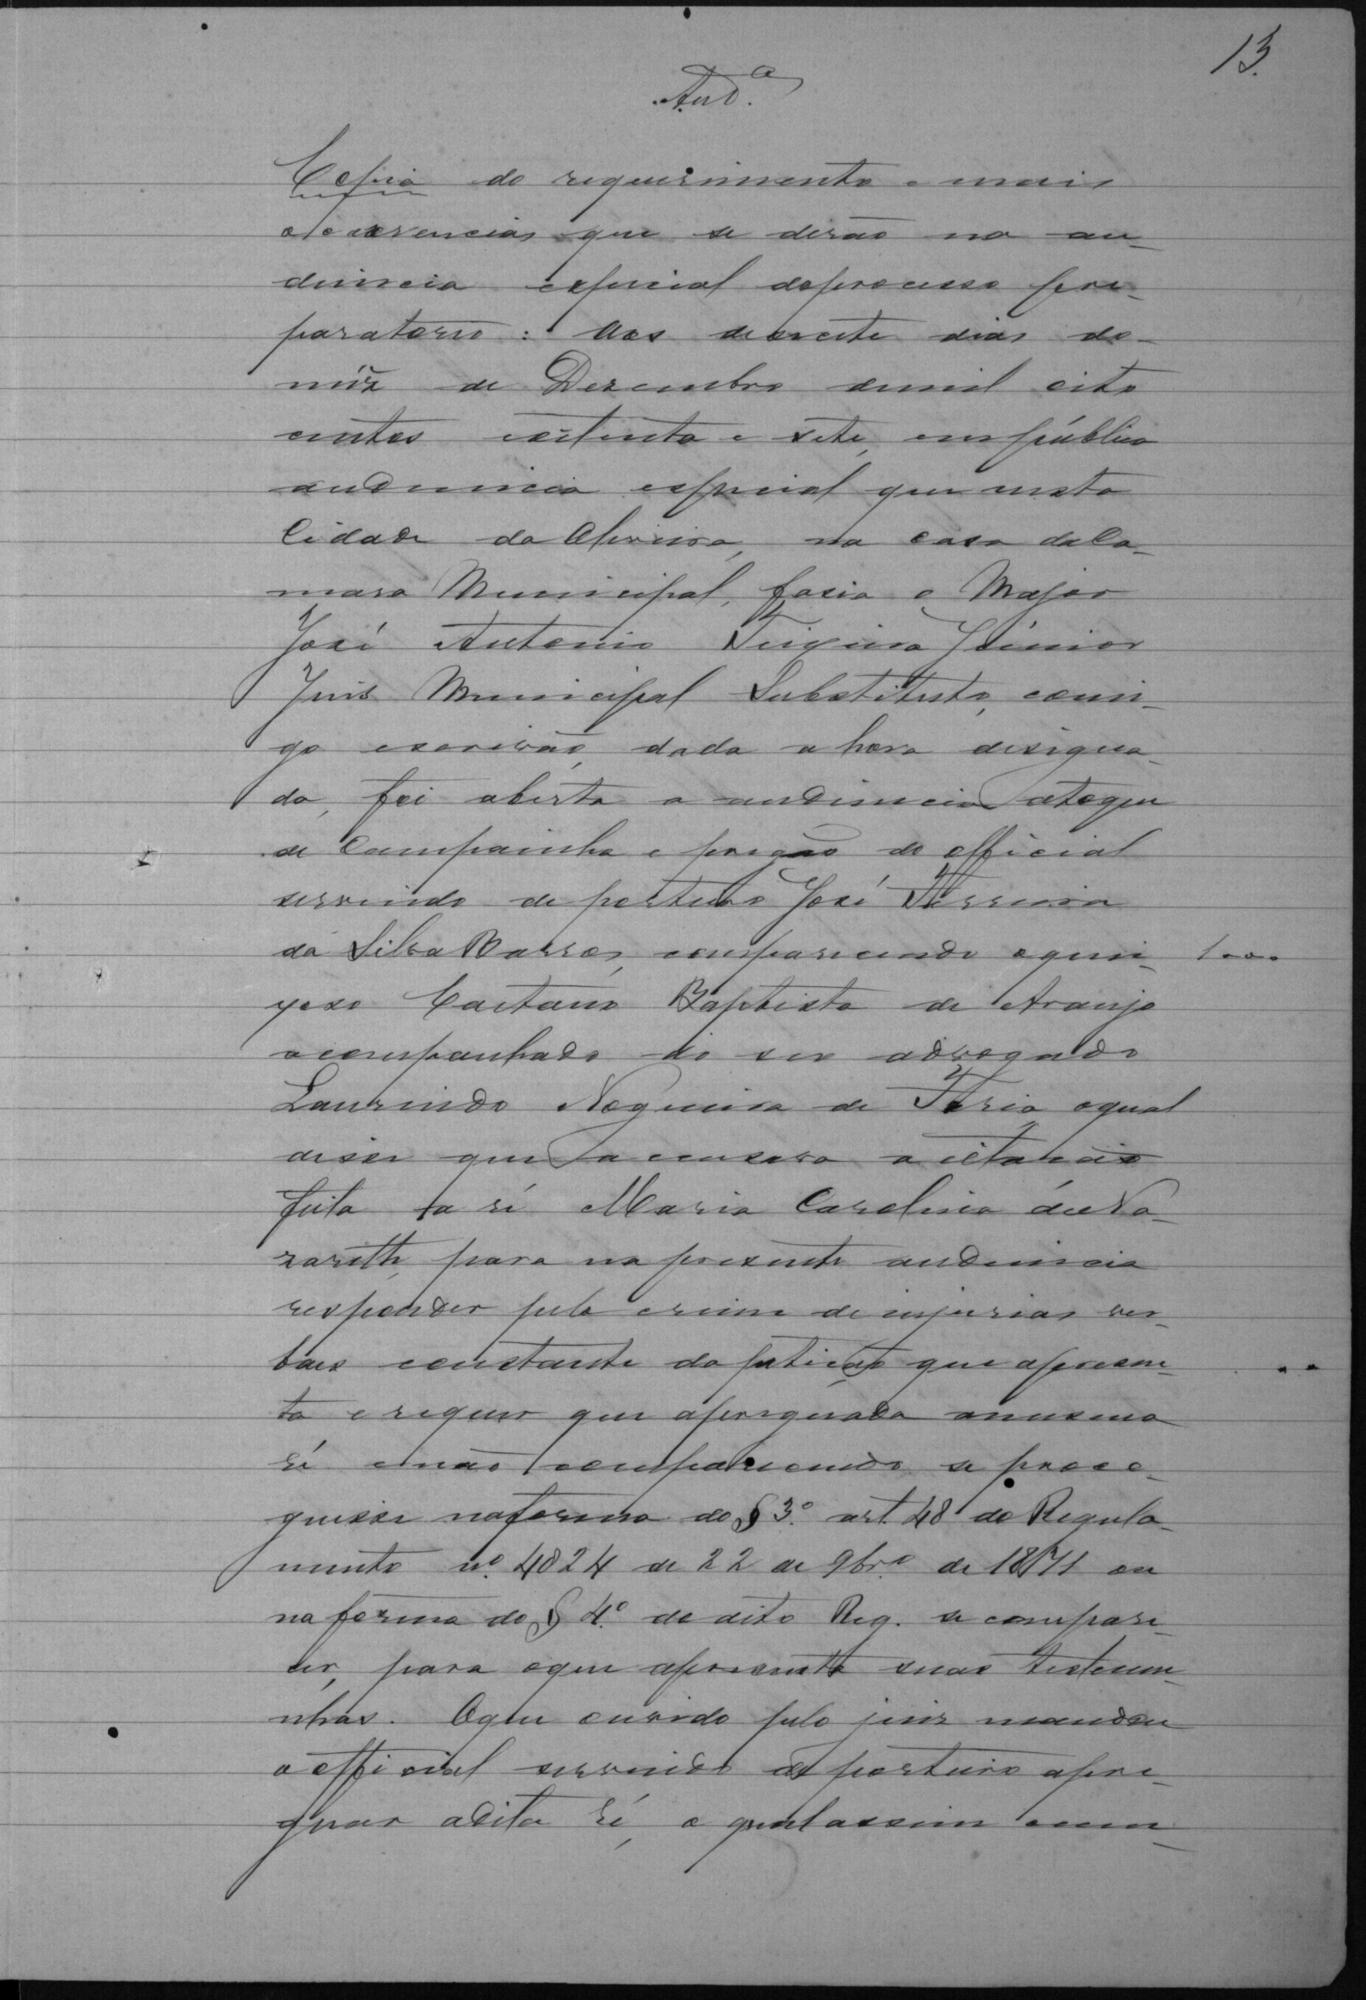 13.
Aud.ª
Copia do requerimento e mais
occorrencias que se derão na au-
diencia especial do processo pre-
paratorio: Aos desecete dias do
mêz de Dezembro de mil oito
centos oitenta e sete, em pública
audiencia especial que nesta
Cidade da Oliveira, na casa da Ca-
mara Municipal, fasia o Major
José Antonio Teixeira Júnior
Juis Municipal Substituto, comi-
go escrivão, dada a hora designa-
da, foi aberta a audiencia a toque
de Campainha e pregão do official
servindo de porteiro José Ferreira
da Silva Barros, comparecendo o quei-
xoso Caetano Baptista de Araujo
acompanhado do seu advogado
Laurindo Nogueira de Faria, o qual
disse que accusava a citacão
feita a ré Maria Carolina de Na-
zareth, para na presente audiencia
responder pelo crime de injurias ver-
baes constante da petição que apresen-
ta e requer que apregoada a mesma
ré e não comparecendo se prose-
guisse na forma do § 3.º art. 48 do Regula-
mento nº. 4824 de 22 de 9br.º de 1871 ou
na forma do § 4.º do dito Reg. se compare-
cer, para o que apresenta suas testemu-
nhas. O que ouvido pelo juiz mandou
o official servindo de porteiro apre-
goar a dita ré, o qual assim cum-